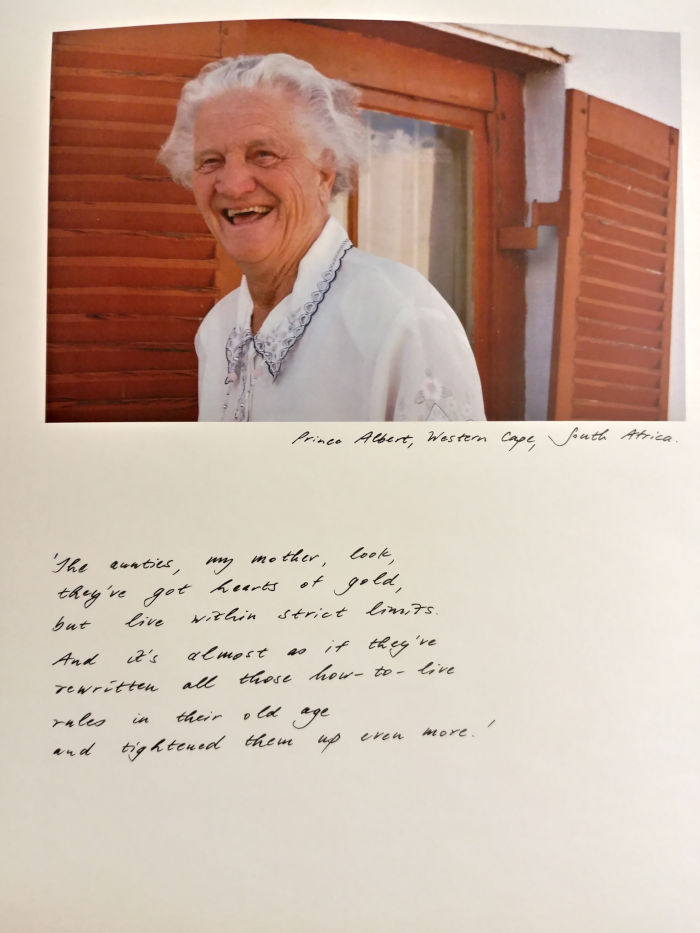 Prince Albert, Western Cape, South Africa.
'The aunties, my mother, look,
they've got hearts of gold,
but live within strict limits.
And it's almost as if they've
rewritten all those how-to-live
rules in their old age
and tightened them up even more.'